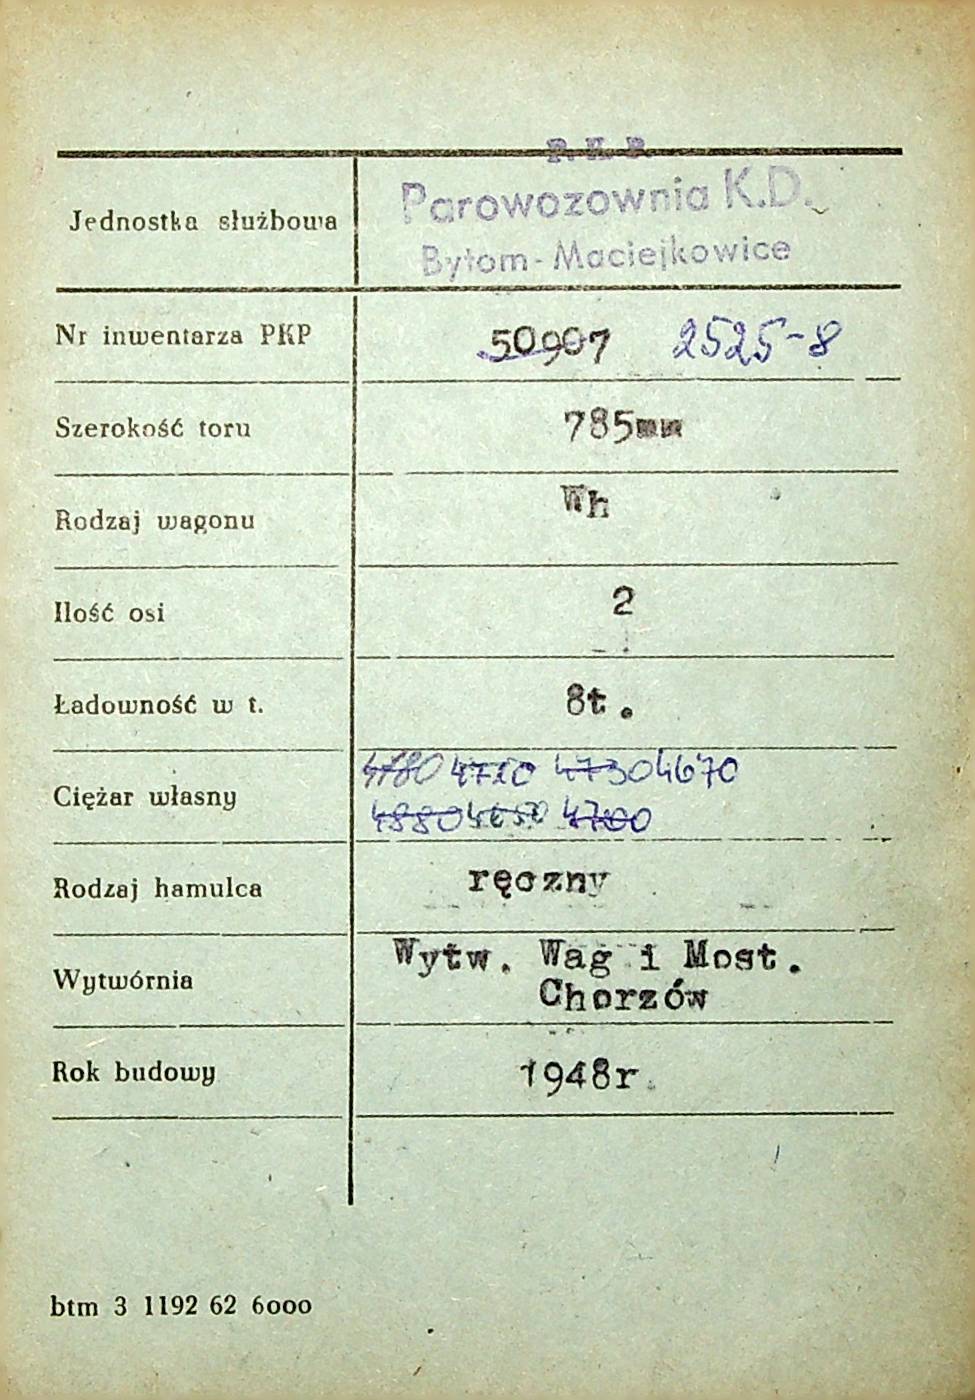 P. K. P.
Jednostka służbowa Parowozownia K.D.
Bytom-Maciejkowice
Nr inwentarza PKP 50907 2525-8
Szerokość toru 785mm
Rodzaj wagonu Wh
Ilość osi 2
Ładowność w t. 8t.
4730 4670
Ciężar własny
4880 4700
Rodzaj hamulca ręczny
Wytw. Wag i Most.
Wytwórnia
Chorzów
Rok budowy 1948r.
btm 3 1192 62 6000